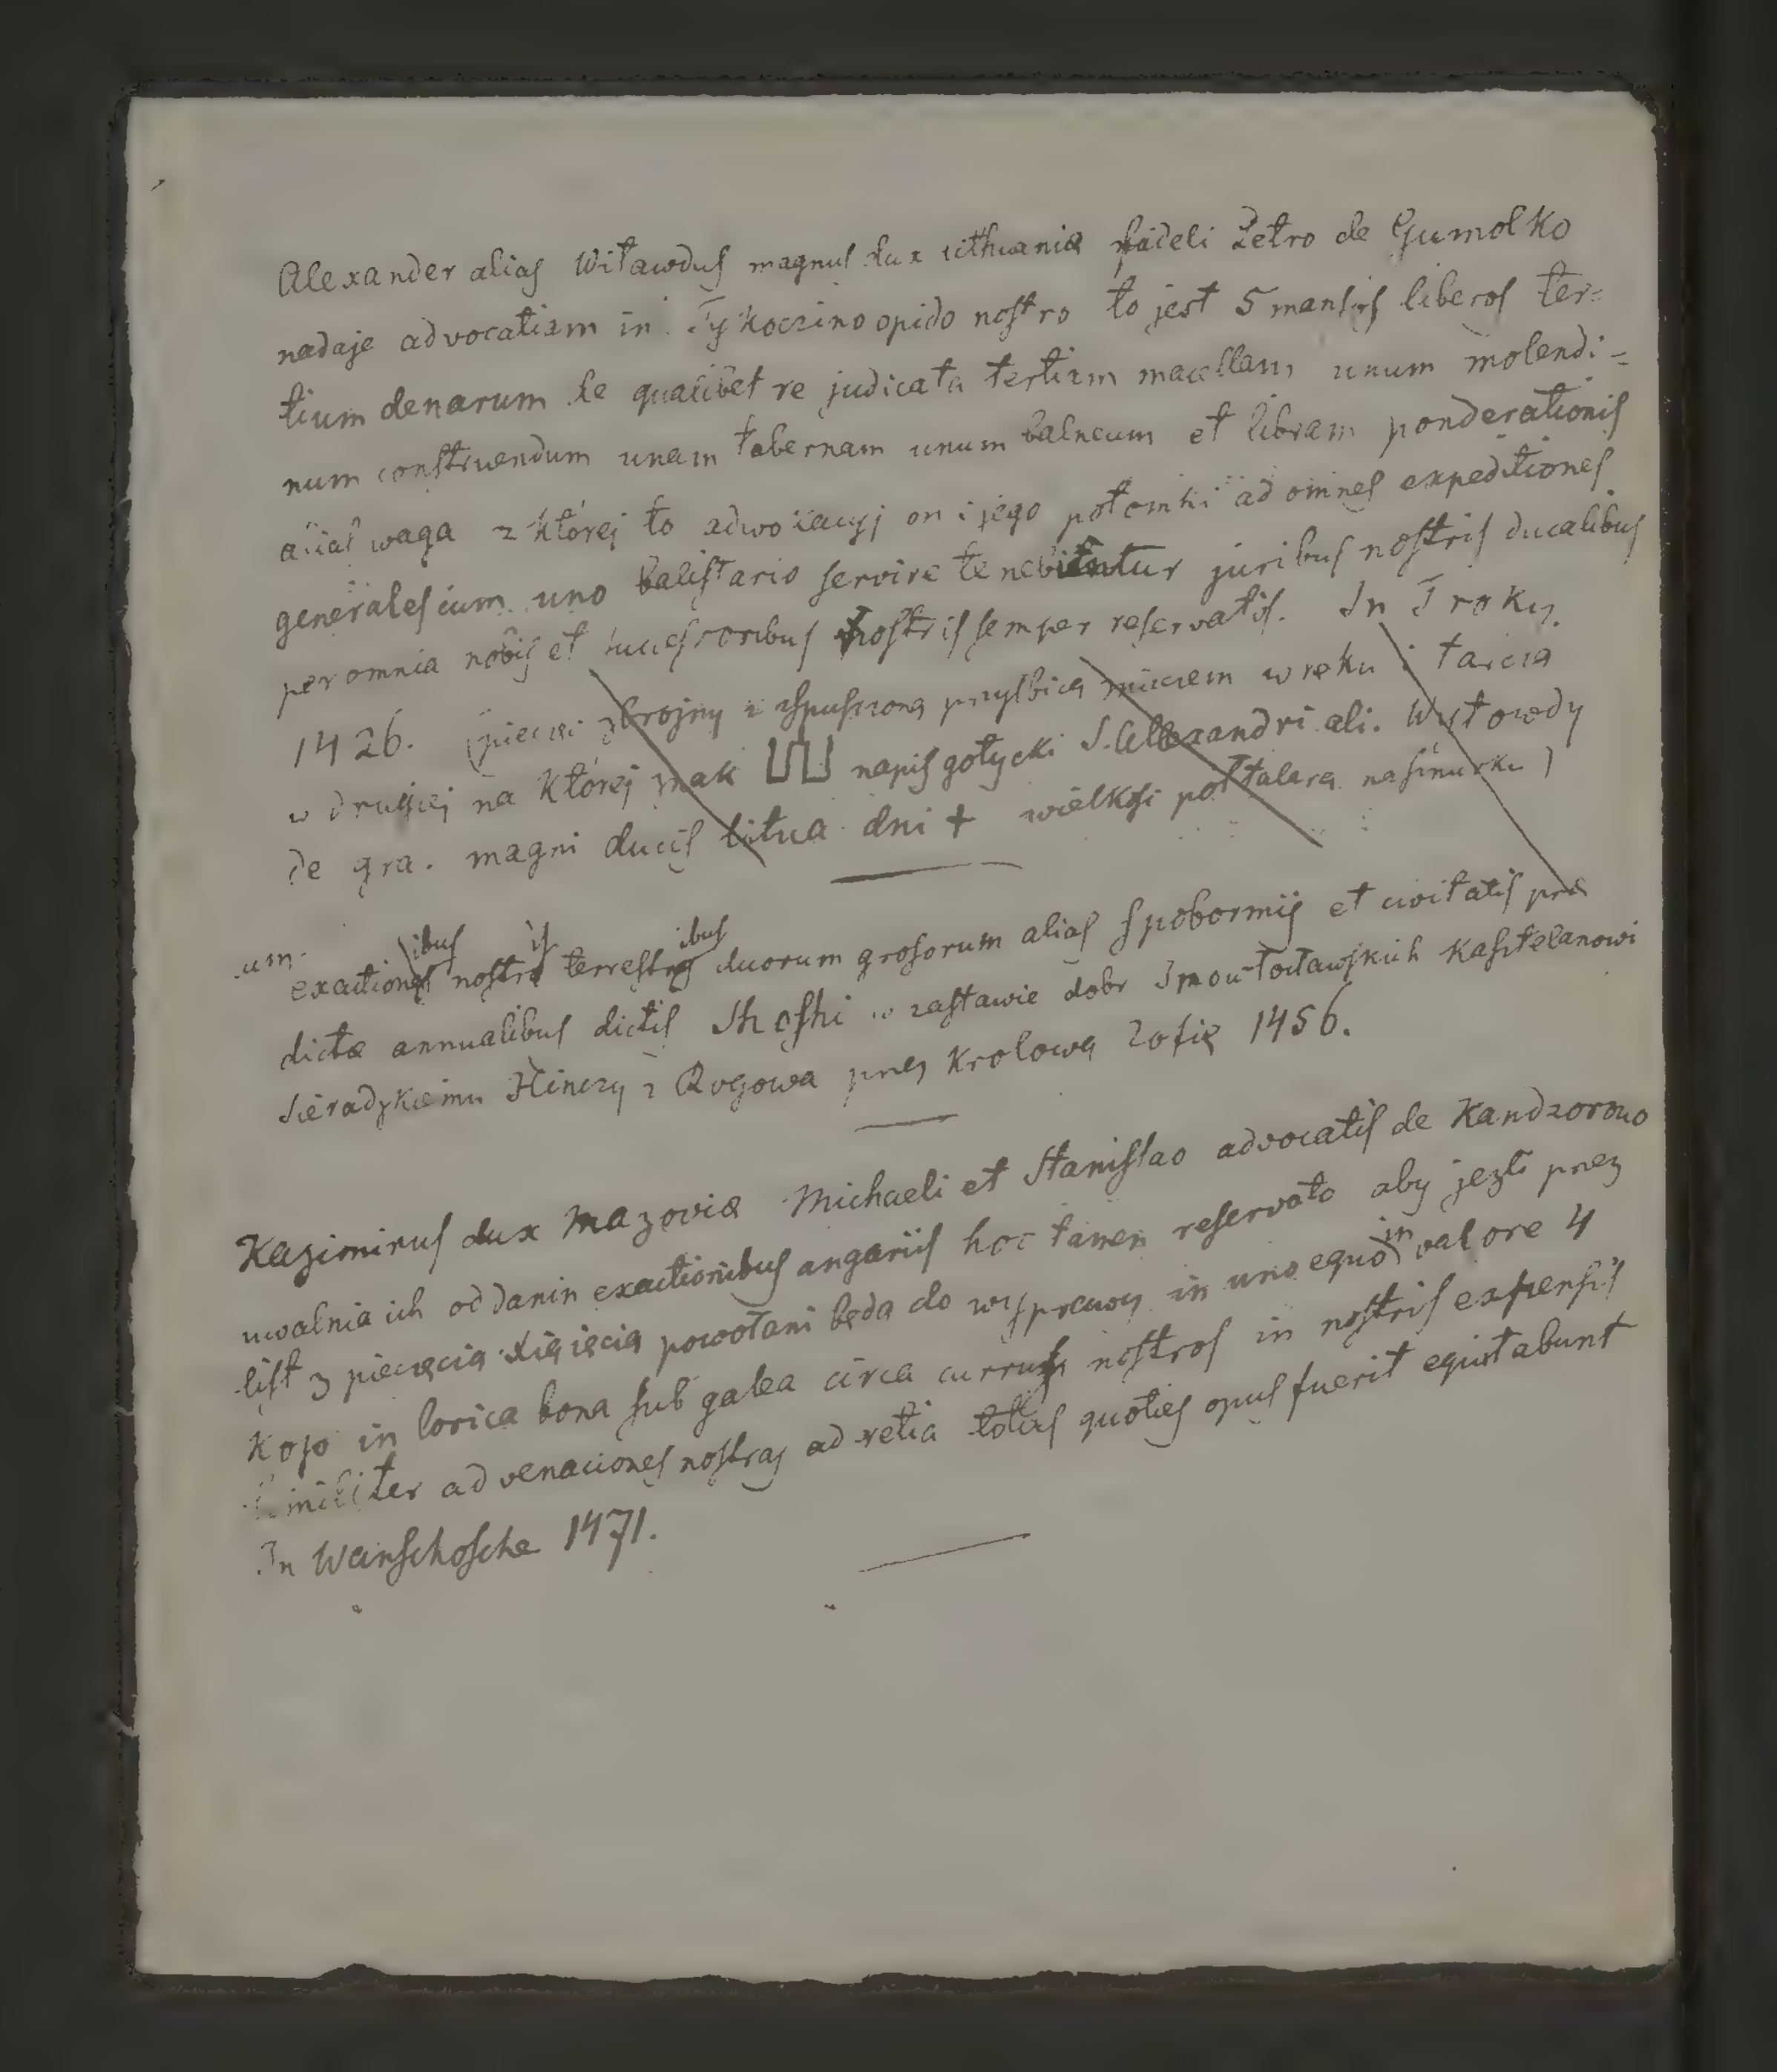 Alexander alias Witawdus magnus dux Lithuaniæ fideli Petro de Gumolko
nadaje advocatiam in Tykoczino opido nostro to jest 5 mansos liberos ter=
tium denarum de qualibet re judicata tertiam macellam unum molendi=
num construendum unam tabernam unum balneum et libram ponderationis
alias waga z której to adwokacyj on i jego potomki ad omnes expeditiones
generales cum uno balistario servire tenebuntur juribus nostris ducalibus
per omnia nobis et successoribus nostris semper reservatis. In Troky.
1426. (pieczęć zbrojny z spuszczoną przyłbicą mieczem w ręku i tarczą
w drugiej na której znak napis gotycki S. Allexandri ali. Wytowdy
De gra. magni ducis litua dni + wielkości pół talara na sznurku)
exactionibus nostris terrestribus duorum grosorum alias spobormis et civitatis præ
dictæ annualibus dictis Shoshi w zastawie dobr Inowłocławskich kasztelanowi
Sieradzkiemu Hinczy z Rogowa przez Krolową Zofię 1456.
Kazimirus dux Mazoviæ Michaeli et Stanislao advocatis de Kandzorowo
uwalnia ich od danin exactionibus angariis hoc tamen reservato aby jeżli przez
list z pieczęcią xięięcią powołani będą do wyprawy in uno equo in valore 4
kop in lorica bona sub galea circa currus nostros in nostris expensis
similiter ad venaciones nostras ad retia totius quoties opus fuerit equitabunt
In Wanschosche 1471.